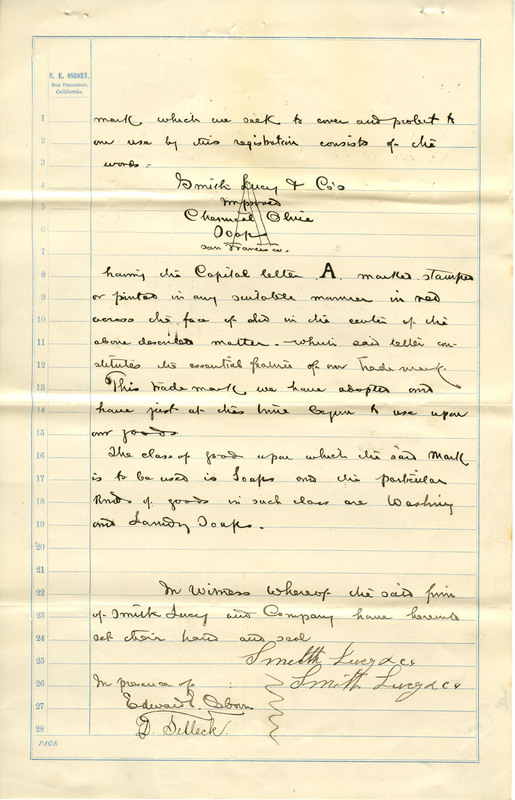 E. E. OSBORN,
San Francisco,
California.
1 mark which we seek to cover and protect to
2 our use by this registration consists of the
3 words -
4 Smith Lucy & Co's
5 Improved
6 Chemical Olive
Soap
7 San Francisco.
8 having the Capital letter A marked stamped
9 or printed in any suitable manner in red
10 across the face of and in the center of the
11 above described matter - which said letter con-
12 stitutes the essential feature of our Trade mark.
13 This trade mark we have adopted and
14 have just at this time begun to use upon
15 our goods
16 The class of goods upon which the said mark
17 is to be used is Soaps and the particular
18 kinds of goods in such class are Washing
19 and Laundry Soaps.
20
21
22 In Witness Whereof the said firm
23 of Smith Lucy and Company have hereunto
24 set their hand and seal
25 Smith Lucy & Co
26 In presence of Smith Lucy & Co
27 Edward E. Osborn
28 D. Selleck.
PAGE